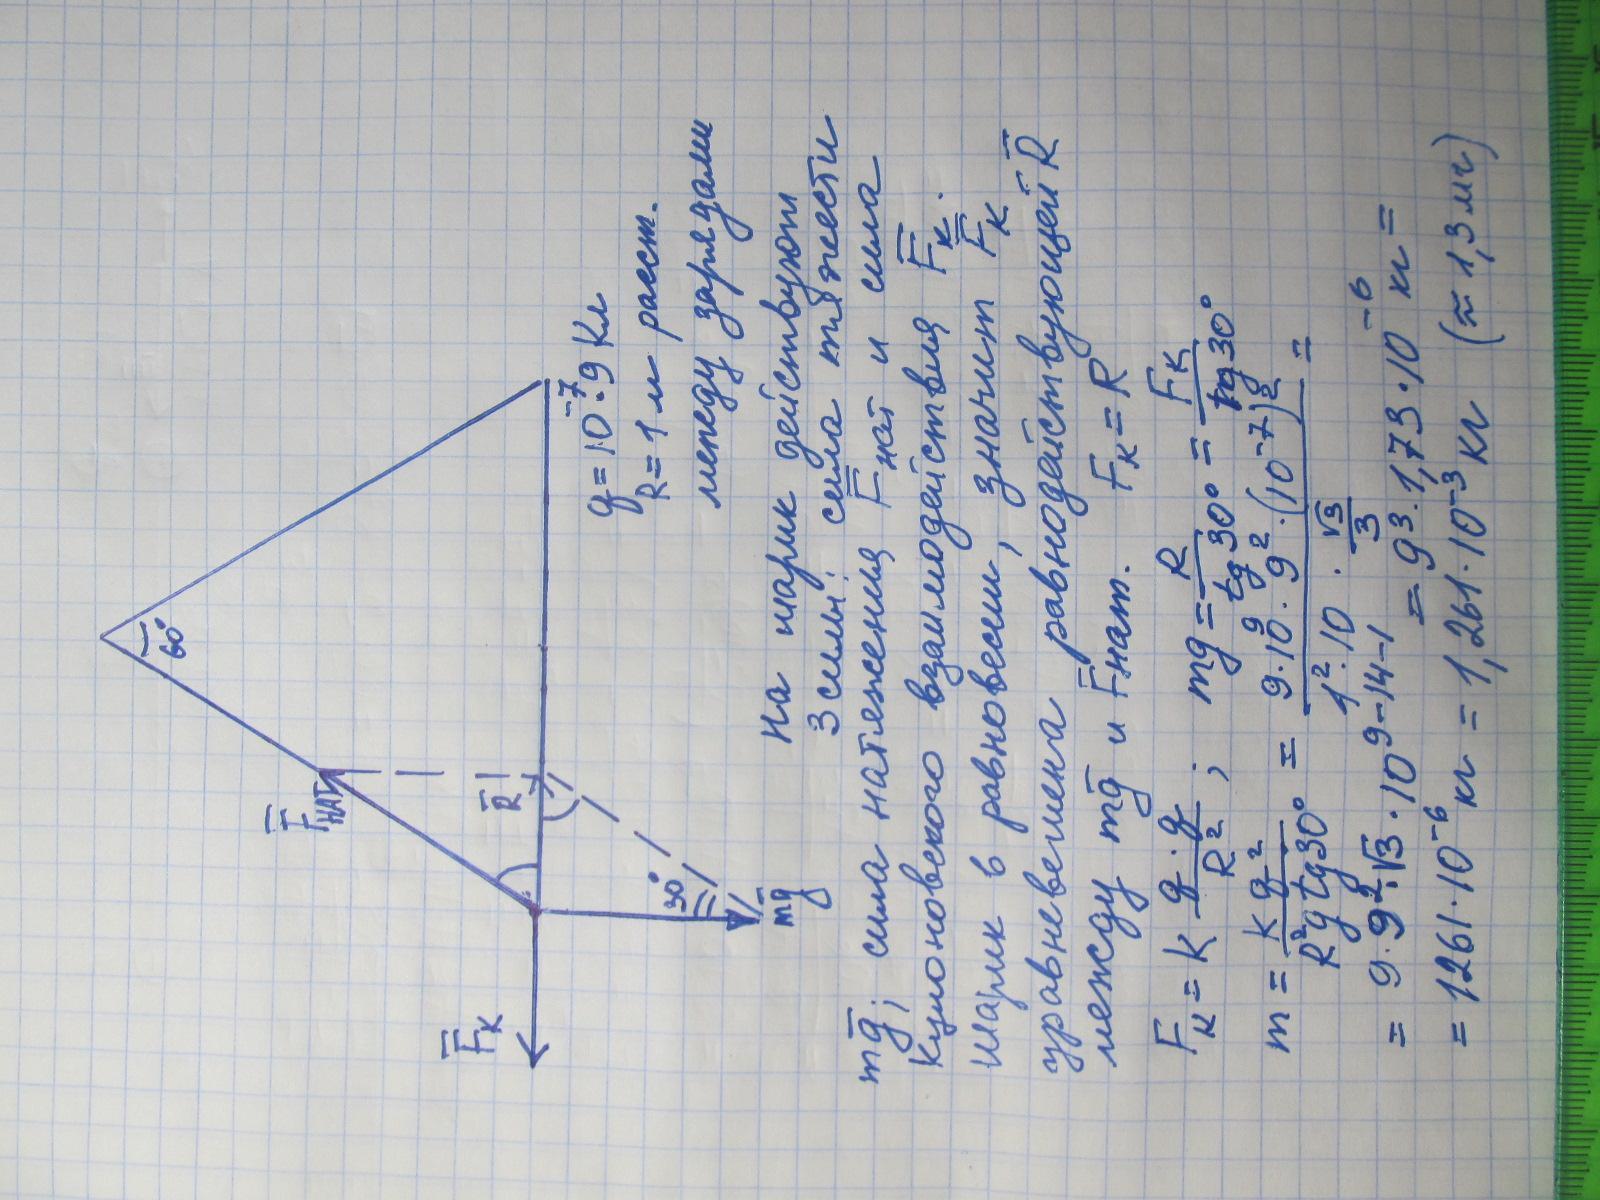 60°
F̅нат
R̅
30°
m̅g̅
F̅к
q = 10⁻⁷·9 Кл
R = 1 м расст.
между зарядами
На шарик действуют
3 силы: сила тяжести
m̅g̅; сила натяжения F̅нат и сила
Кулоновского взаимодействия F̅к.
Шарик в равновесии, значит F̅к
уравновешена равнодействующей R̅
между m̅g̅ и F̅нат. Fк = R
Fк = k q·q / R² ; mg = R / tg 30° = Fк / tg 30°
m = k q² / R² g tg 30° = 9·10⁹·9²·(10⁻⁷)² / 1²·10·√3/3 =
= 9·9²·√3·10⁹⁻¹⁴⁻¹ = 9³·1,73·10⁻⁶ кг =
= 1261·10⁻⁶ кг = 1,261·10⁻³ кг (≈ 1,3 мг)